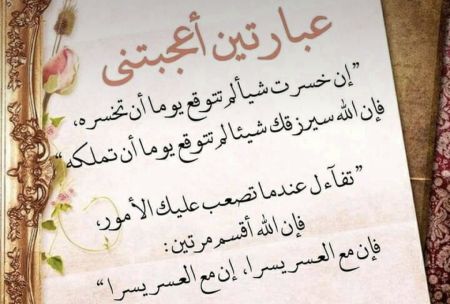 عبارتين أعجبتنى
”إن خسرت شيألم تتوقع يوما أن تخسره،
فإن الله سيرزقك شيئالم تتوقع يوما أن تملكه“
”تفآءل عندما تصعب عليك الأمور،
فإن الله أقسم مرتين:
فإن مع العسر يسرا، إن مع العسر يسرا“